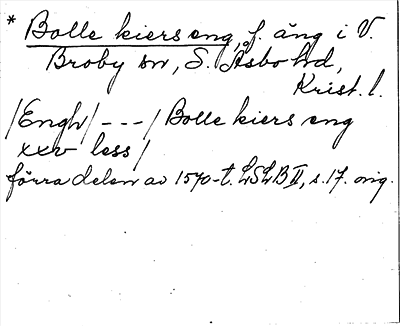 * Bolle kiers eng, f. äng i V.
Broby sn, S. Åsbo hd,
Krist. l.
/Engh/ - - - / Bolle kiers eng
xxv less /
förra delen av 1570-t. LSLB II, s. 17. orig.